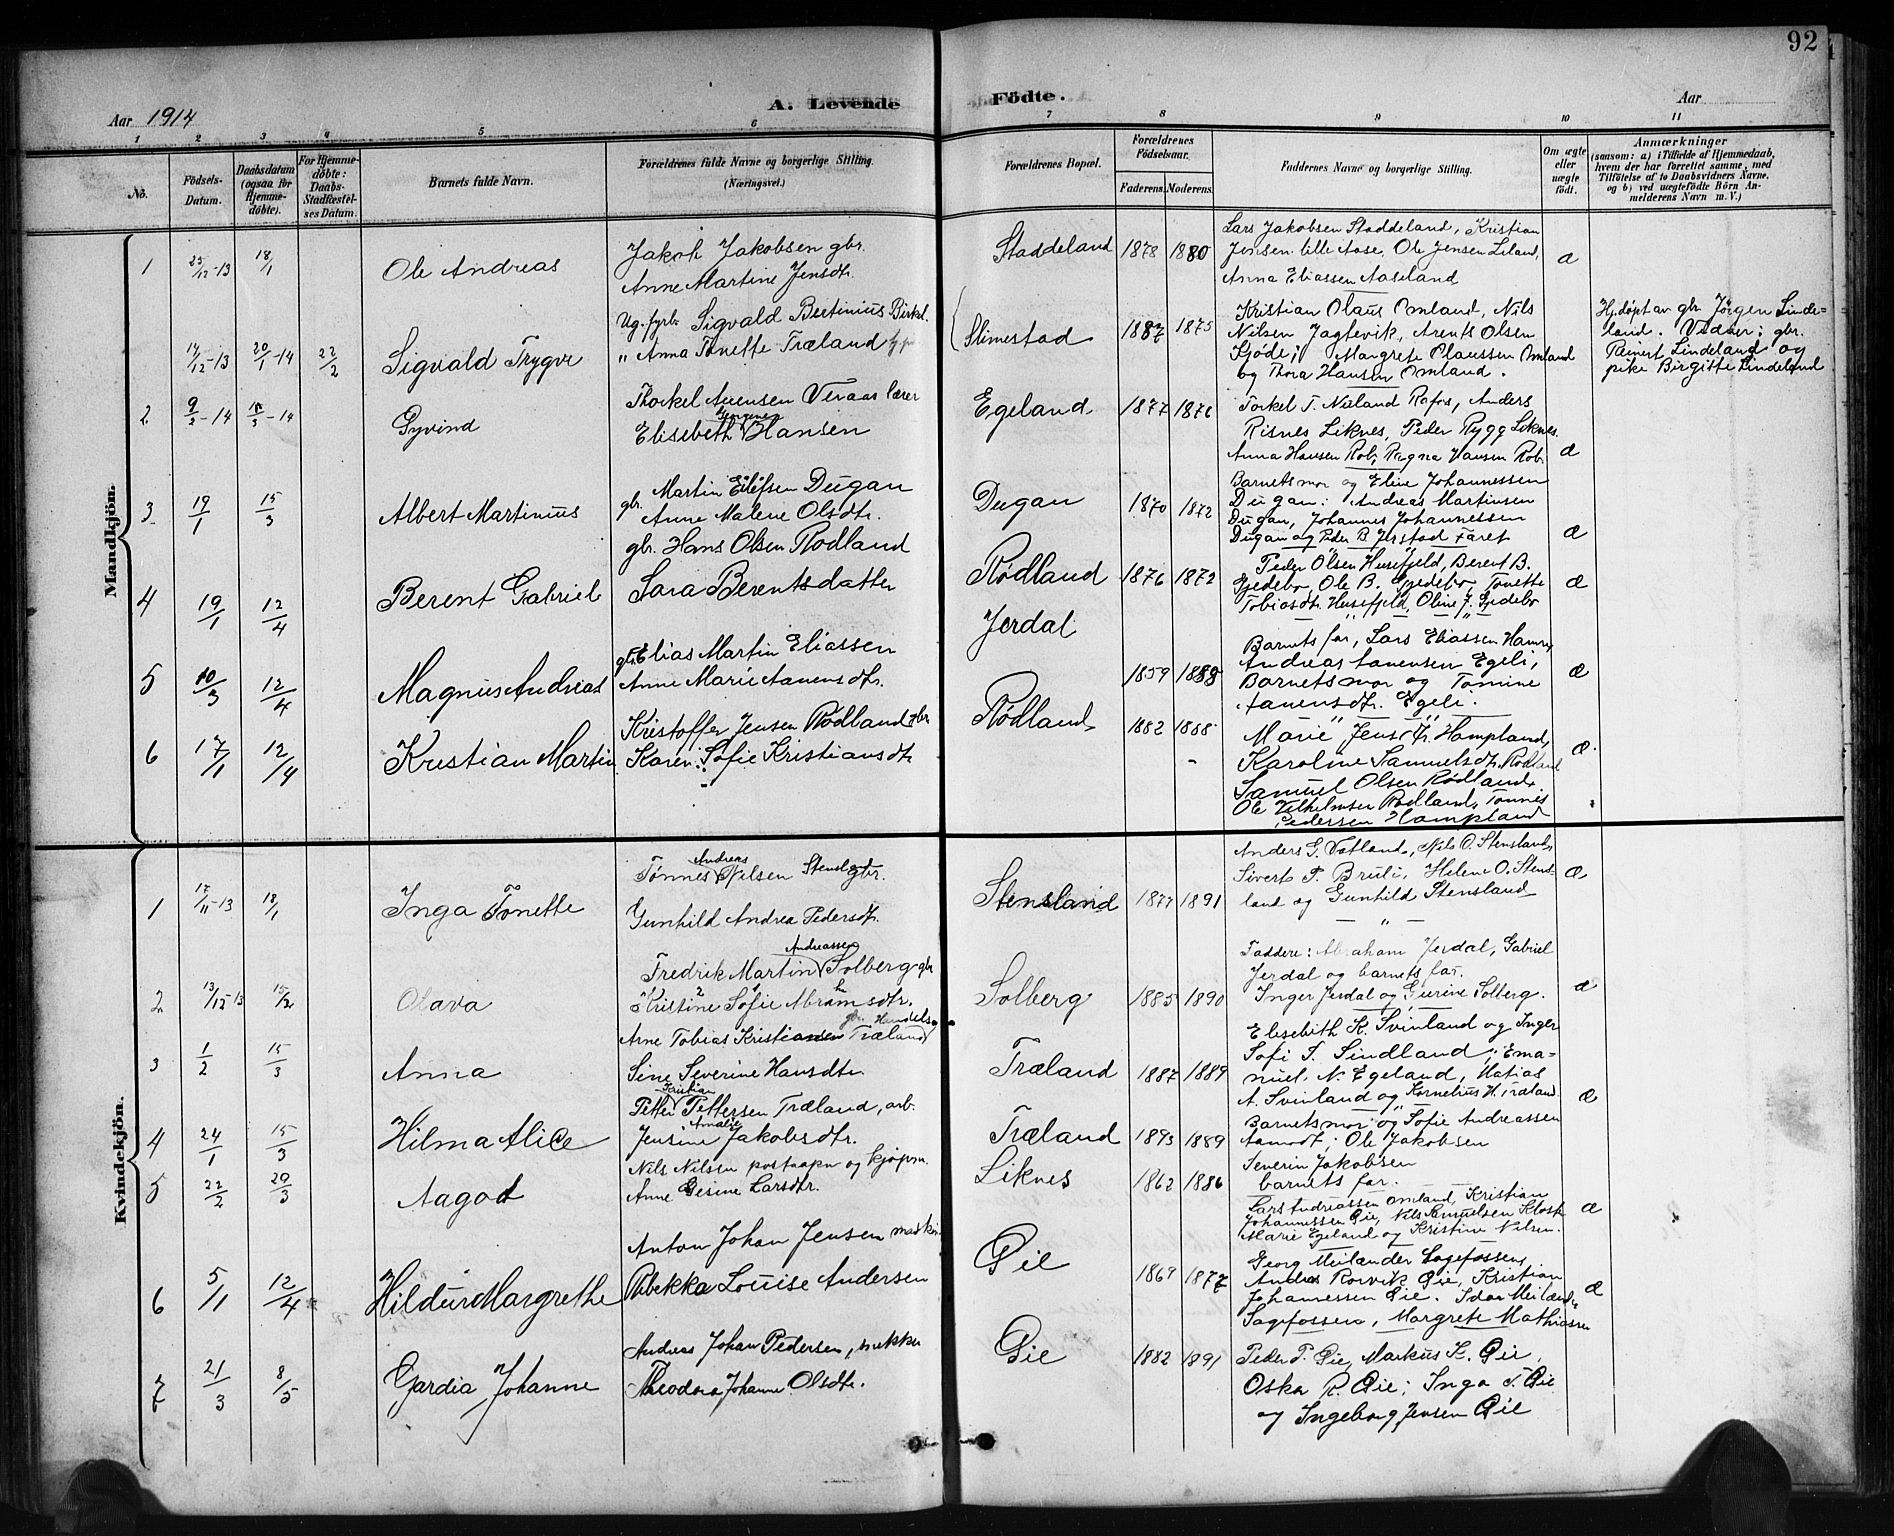 92
Aar 1914
A. Levende Födte.
Aar
1 2 3 4 5 6 7 8 9 10 11
No.
Födsels-Datum.
Daabsdatum (ogsaa for Hjemmedöbte).
For Hjemmedöbte: Daabs-Stadfæstelses Datum.
Barnets fulde Navn.
Forældrenes fulde Navne og borgerlige Stilling.
(Næringsvei.)
Forældrenes Bopæl.
Forældrenes Födselsaar.
Faderens. Moderens.
Faddernes Navne og borgerlige Stilling.
Om ægte eller uægte födt.
Anmærkninger
(saasom: a) i Tilfælde af Hjemmedaab, hvem der har forrettet samme, med Tilföielse af to Daabsvidners Navne, og b) ved uægtefödte Börn Anmelderens Navn m. V.)
Mandkjön.
1 25/12-13 18/1 Ole Andreas
Jakob Jakobsen gbr.
Anne Martine Jensdtr.
Staddeland 1878 1880
Lars Jakobsen Staddeland, Kristian
Jensen lille Aase, Ole Jensen Leland,
Anna Eliassen Aaseland
æ
14/12-13 20/1-14 22/2 Sigvald Trygve
Ug. fyrb. Sigvald Bertinius Birkel.
" Anna Tonette Træland
Slimestad 1887 1875
Kristian Olaus Omland, Nils
Nilsen Jaglevik, Arents Olsen
Fjöde; Margrete Olaussen Omland
og Thora Hansen Omland.
Hj.døpt av gbr. Jörgen Lindeland. Vidner: gbr.
Reinert Lindeland og
pike Birgitte Lindeland
2 9/2-14 15/3-14 Øyvind
Thorkel Aurensen Veraas lærer
Elisebeth Hansen
Egeland 1877 1876
Torkel T. Neland Rafos, Anders
Risnes Liknes, Peder Rygg Liknes.
Anna Hansen Rob, Ragna Hansen Rob.
æ
3 19/1 15/3 Albert Martinius
gbr. Martin Eilefsen Dugan
Anne Malene Olsdtr.
Dugan 1870 1872
Barnets mor og Eline Johannessen
Dugan: Andreas Martinsen
Dugan, Johannes Johannessen
Dugan og Peder B. Jerstad Faret
æ
4 19/1 12/4 Berent Gabriel
gbr. Hans Olsen Rødland
Sara Berentsdatter
Rødland 1876 1872
Peder Olsen Husefjeld, Berent B.
Gjedebo, Ole B. Gjedebo, Tonette
Tobiasdtr. Husefjeld, Oline J. Gjedebo
æ
5 10/3 12/4 Magnus Andreas
gbr. Elias Martin Eliassen
Anne Marie Aanensdtr.
Jerdal 1859 1888
Barnets far, Lars Eliassen Hamre,
Andreas Aanensen Egeli,
Barnets mor og Tomine
Aanensdtr. Egeli.
æ
6 17/1 12/4 Kristian Martin
Kristoffer Jensen Rødland gbr
Karen Sofie Kristiansdtr
Rødland 1882 1888
Marie Jensdtr. Hampland,
Karoline Samuelsdtr. Rødland
Samuel Olsen Rødland,
Ole Vilhelmsen Rødland, Tønnes
Pedersen Hampland
æ.
Kvindekjön.
1 17/11-13 18/1 Inga Tonette
Tønnes Andreas Nilsen Stensl. gbr.
Gunhild Andrea Pedersdtr.
Stensland 1877 1891
Anders G. Vatland, Nils O. Stensland,
Sivert P. Bruli, Helene O. Stensland og Gunhild Stensland
æ
2 13/12-13 15/2 Olava
Fredrik Martin Andreassen Solberg gbr
Kristine Sofie Abramsdtr.
Solberg 1885 1890
Faddere: Abraham Jerdal, Gabriel
Jerdal og barnets far.
Inger Jerdal og Gurine Solberg.
æ
3 1/2 15/3 Anna
Arne Tobias Kristiansen Træland
Sine Severine Hansdtr.
Træland 1887 1889
Elisebeth K. Svinland og Inger
Sofi S. Sindland; Emanuel N. Egeland, Matias
A. Svinland og Kornelius H. Træland
æ
4 24/1 15/3 Hilma Alice
Petter Pettersen Træland, arb.
Jensine Amalie Jakobsdtr.
Træland 1893 1889
Barnets mor og Sofie Andreassen
Aamodt; Ole Jakobsen
Severin Jakobsen
barnets far.
5 22/2 29/3 Aagot
Nils Nilsen postaapn og kjøpm.
Anne Gesine Larsdtr.
Liknes 1862 1886
Lars Andreassen Omland, Kristian
Johannessen Øie, Nils Samuelsen Kloste
Marie Egeland og Kristine Nilsen.
æ
6 5/1 12/4 Hildur Margrethe
Anton Johan Jensen maskin
Rebekka Louise Andersen
Øie 1869 1877
Georg Meilander Sagefossen,
Anders Rorvik Øie, Kristian
Johannessen Øie. Ida Meilander
Sagefossen, Margrete Mathiassen
æ
7 21/3 8/5 Gardia Johanne
Andreas Johan Pedersen, snekker
Theodora Johanne Olsdtr.
Øie 1882 1891
Peder P. Øie, Markus K. Øie,
Oskar R. Øie; Inga T. Øie
og Ingeborg Jensen Øie